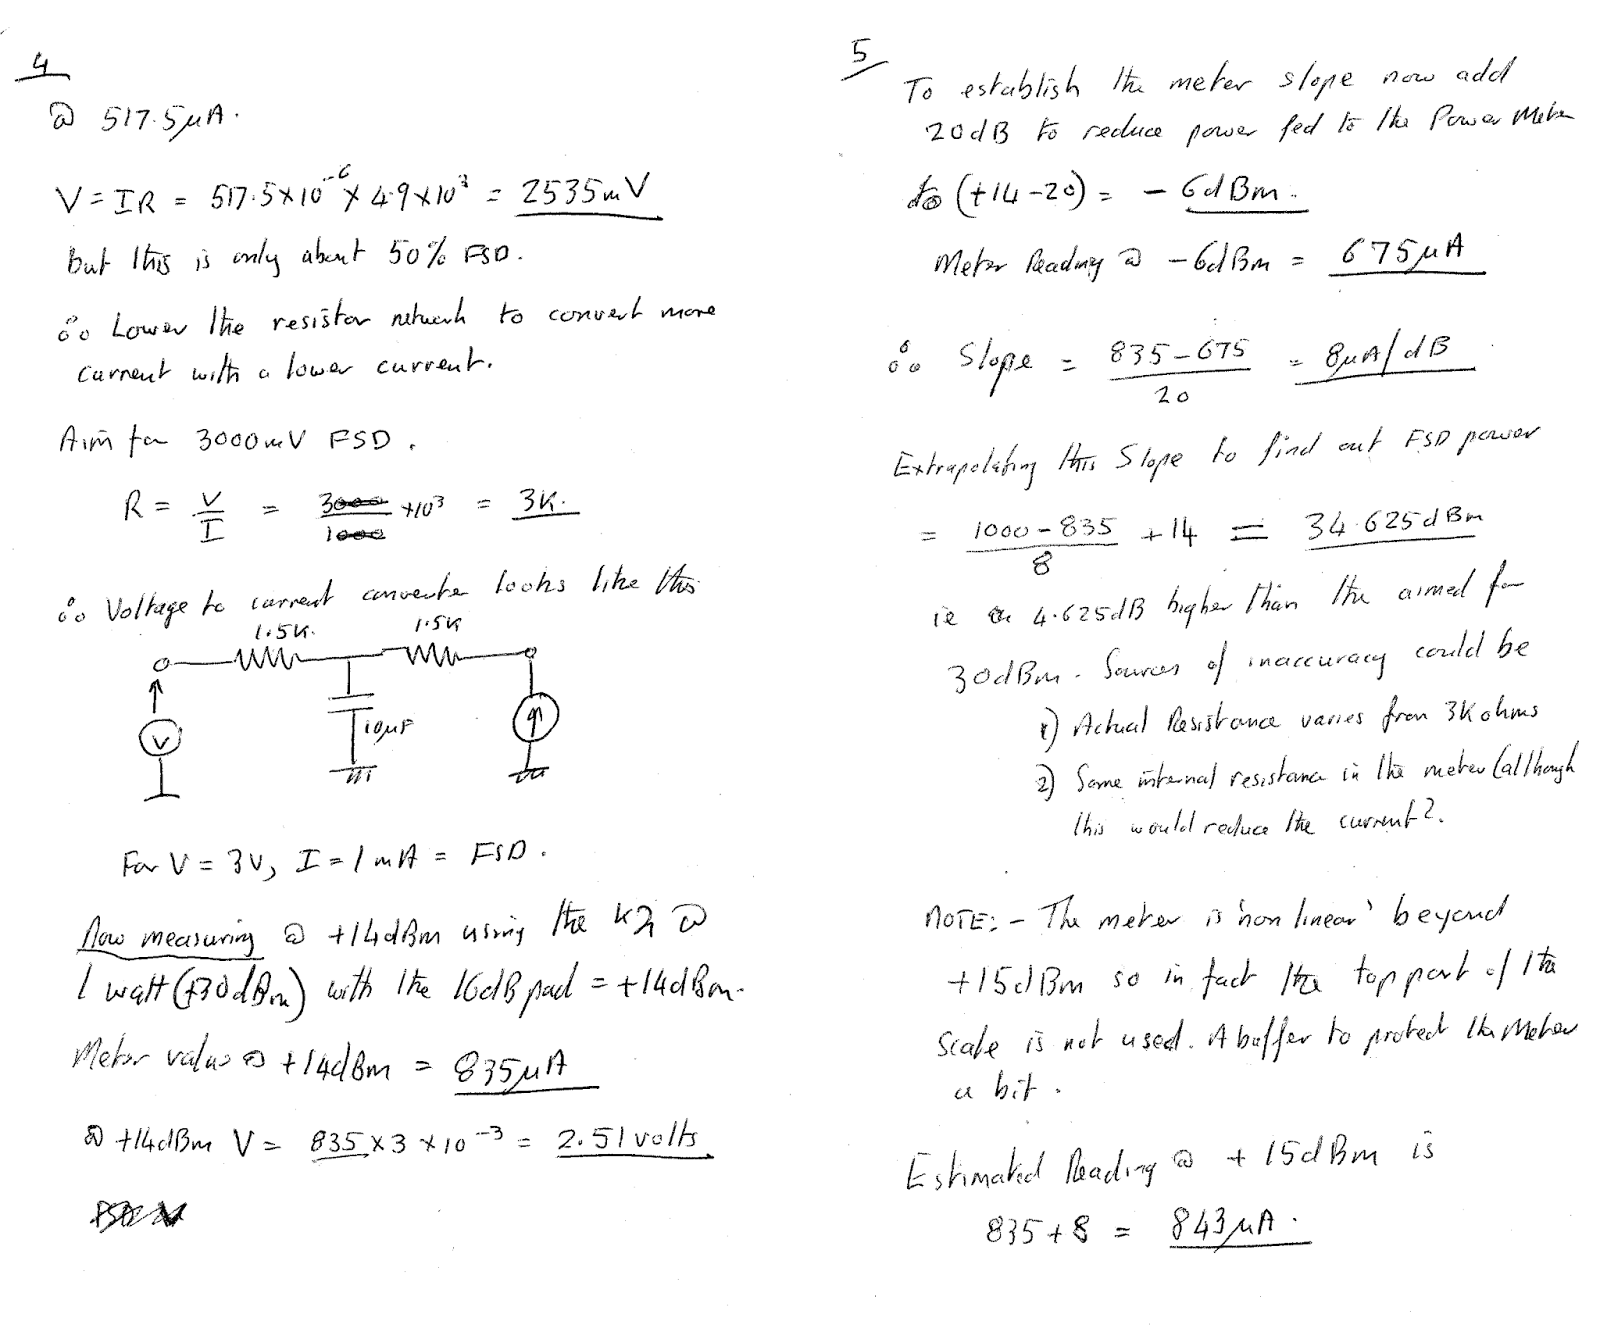 4
@ 517.5μA.
V = IR = 517.5×10⁻⁶ × 4.9×10³ = 2535mV
but this is only about 50% FSD.
∴ Lower the resistor network to convert more
current with a lower current.
Aim for 3000mV FSD.
R = V/I = 3000/1000 ×10³ = 3K.
∴ Voltage to current converter looks like this
1.5K. 1.5K
V 10μF
For V = 3V, I = 1mA = FSD.
Now measuring @ +14dBm using the K2 @
1 watt (+30dBm) with the 16dB pad = +14dBm.
Meter value @ +14dBm = 835μA
@ +14dBm V = 835×3×10⁻³ = 2.51volts
5
To establish the meter slope now add
20dB to reduce power fed to the Power Meter
to (+14-20) = -6dBm.
Meter Reading @ -6dBm = 675μA
∴ Slope = 835-675/20 = 8μA/dB
Extrapolating this Slope to find out FSD power
= 1000-835/8 +14 = 34.625dBm
ie 4.625dB higher than the aimed for
30dBm. Sources of inaccuracy could be
1) Actual Resistance varies from 3K ohms
2) Some internal resistance in the meter (although
this would reduce the current?.
NOTE:- The meter is 'non linear' beyond
+15dBm so in fact the top part of the
scale is not used. A buffer to protect the Meter
a bit.
Estimated Reading @ +15dBm is
835+8 = 843μA.